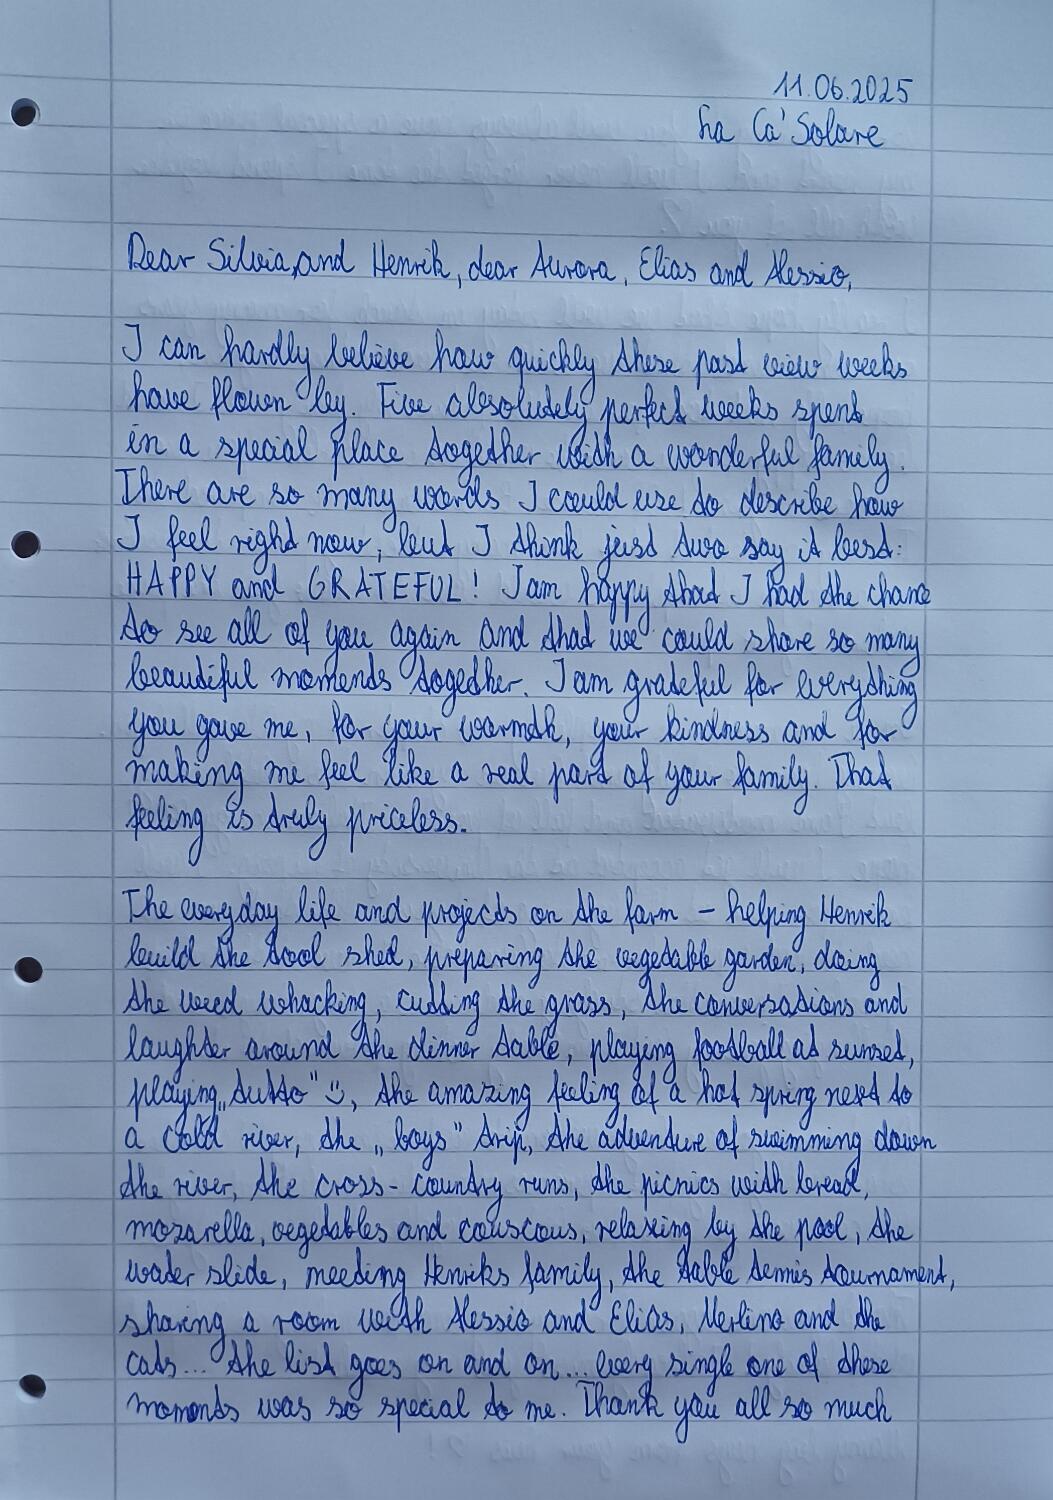 11.06.2025
La Ca' Solare
Dear Silvia, and Henrik, dear Aurora, Elias and Alessio,
I can hardly believe how quickly these past view weeks
have flown by. Five absolutely perfect weeks spent
in a special place together with a wonderful family.
There are so many words I could use to describe how
I feel right now, but I think just two say it best:
HAPPY and GRATEFUL! I am happy that I had the chance
to see all of you again and that we could share so many
beautiful moments together. I am grateful for everything
you gave me, for your warmth, your kindness and for
making me feel like a real part of your family. That
feeling is truly priceless.
The everyday life and projects on the farm – helping Henrik
build the tool shed, preparing the vegetable garden, doing
the weed whacking, cutting the grass, the conversations and
laughter around the dinner table, playing football at sunset,
playing „tutto" ☺, the amazing feeling of a hot spring next to
a cold river, the „boys" trip, the adventure of swimming down
the river, the cross-country runs, the picnics with bread,
mozarella, vegetables and couscous, relaxing by the pool, the
water slide, meeting Henriks family, the table tennis tournament,
sharing a room with Alessio and Elias, Merlino and the
cats... the list goes on and on... every single one of these
moments was so special to me. Thank you all so much